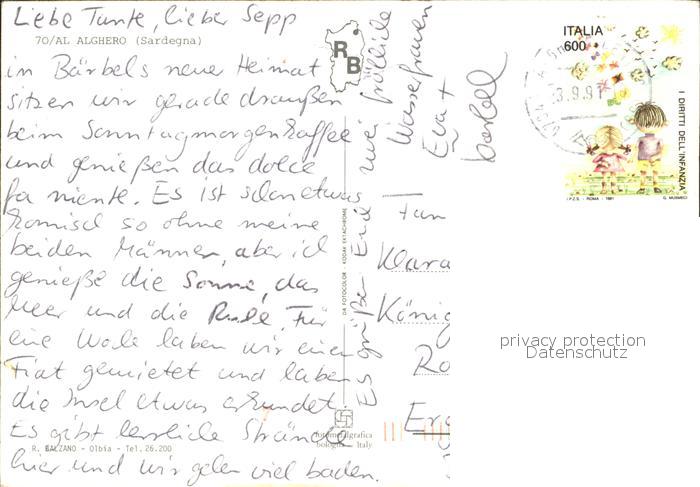 Liebe Tante, lieber Sepp
70/AL ALGHERO (Sardegna)
in Bärbels neuer Heimat
sitzen wir gerade draußen
beim Sonntagmorgenkaffee
und genießen das dolce
far niente. Es ist schon etwas
komisch so ohne meine
beiden Männer, aber ich
genieße die Sonne, das
Meer und die Ruhe. Für
eine Woche haben wir einen
Fiat gemietet und haben
die Insel etwas erkundet.
Es gibt herrliche Strände
R. BALZANO - Olbia - Tel. 26.200
hier und wir gehen viel baden.
Es grüßen Euch zwei fröhliche
Wasserfrauen
Eva +
Bärbel
RB
DA FOTOCOLOR - KODAK EKTACHROME
fotometalgrafica
bologna - Italy
ITALIA
600
I DIRITTI DELL'INFANZIA
I.P.Z.S. - ROMA - 1991
G. MUSMECI
3.9.91
Klara
König
Ro
Erg
privacy protection
Datenschutz